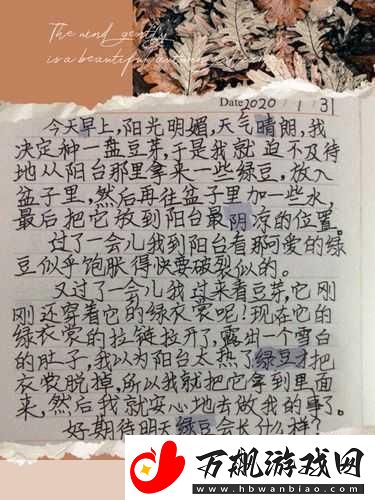 The wind gently
is a beautiful autumn
Date 2020 / 1 / 31
今天早上，阳光明媚，天气晴朗，我
决定种一盘豆芽，于是我就迫不及待
地从阳台那里拿来一些绿豆，放入
盆子里，然后再往盆子里加一些水，
最后把它放到阳台最阴凉的位置。
过了一会儿我到阳台看那可爱的绿
豆似乎饱胀得快要破裂似的。
又过了一会儿我过来看豆芽，它刚
刚还穿着它的绿衣裳呢？现在它的
绿衣裳的拉链拉开了，露出一个雪白
的肚子，我以为阳台太热了绿豆才把
衣裳脱掉，所以我就把它拿到里面
来，然后我就安心地去做我的事了。
好期待明天绿豆会长什么样？
万飙游戏网
www.hbwanbiao.com